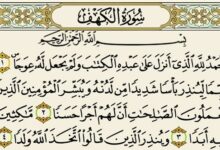 سُورَةُ الكَهْفِ
بِسْمِ اللَّهِ الرَّحْمَٰنِ الرَّحِيمِ
حَمْدُ لِلَّهِ الَّذِي أَنزَلَ عَلَىٰ عَبْدِهِ الْكِتَٰبَ وَلَمْ يَجْعَل لَّهُ عِوَجَا ١
مًا لِّيُنذِرَ بَأْسًا شَدِيدًا مِّن لَّدُنْهُ وَيُبَشِّرَ الْمُؤْمِنِينَ الَّذِينَ
مَلُونَ الصَّٰلِحَٰتِ أَنَّ لَهُمْ أَجْرًا حَسَنًا ٢ مَّٰكِثِينَ
هِ أَبَدًا ٣ وَيُنذِرَ الَّذِينَ قَالُوا اتَّخَذَ اللَّهُ وَلَدًا ٤